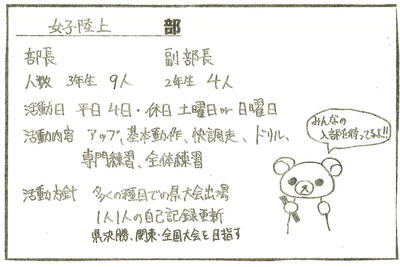 女子陸上 部
部長 副部長
人数 3年生 9人 2年生 4人
活動日 平日4日・休日 土曜日or日曜日
活動内容 アップ、基本動作、快調走、ドリル、
専門練習、全体練習
みんなの
入部を待ってるよ!!
活動方針 多くの種目での県大会出場
1人1人の自己記録更新
県決勝、関東・全国大会を目指す